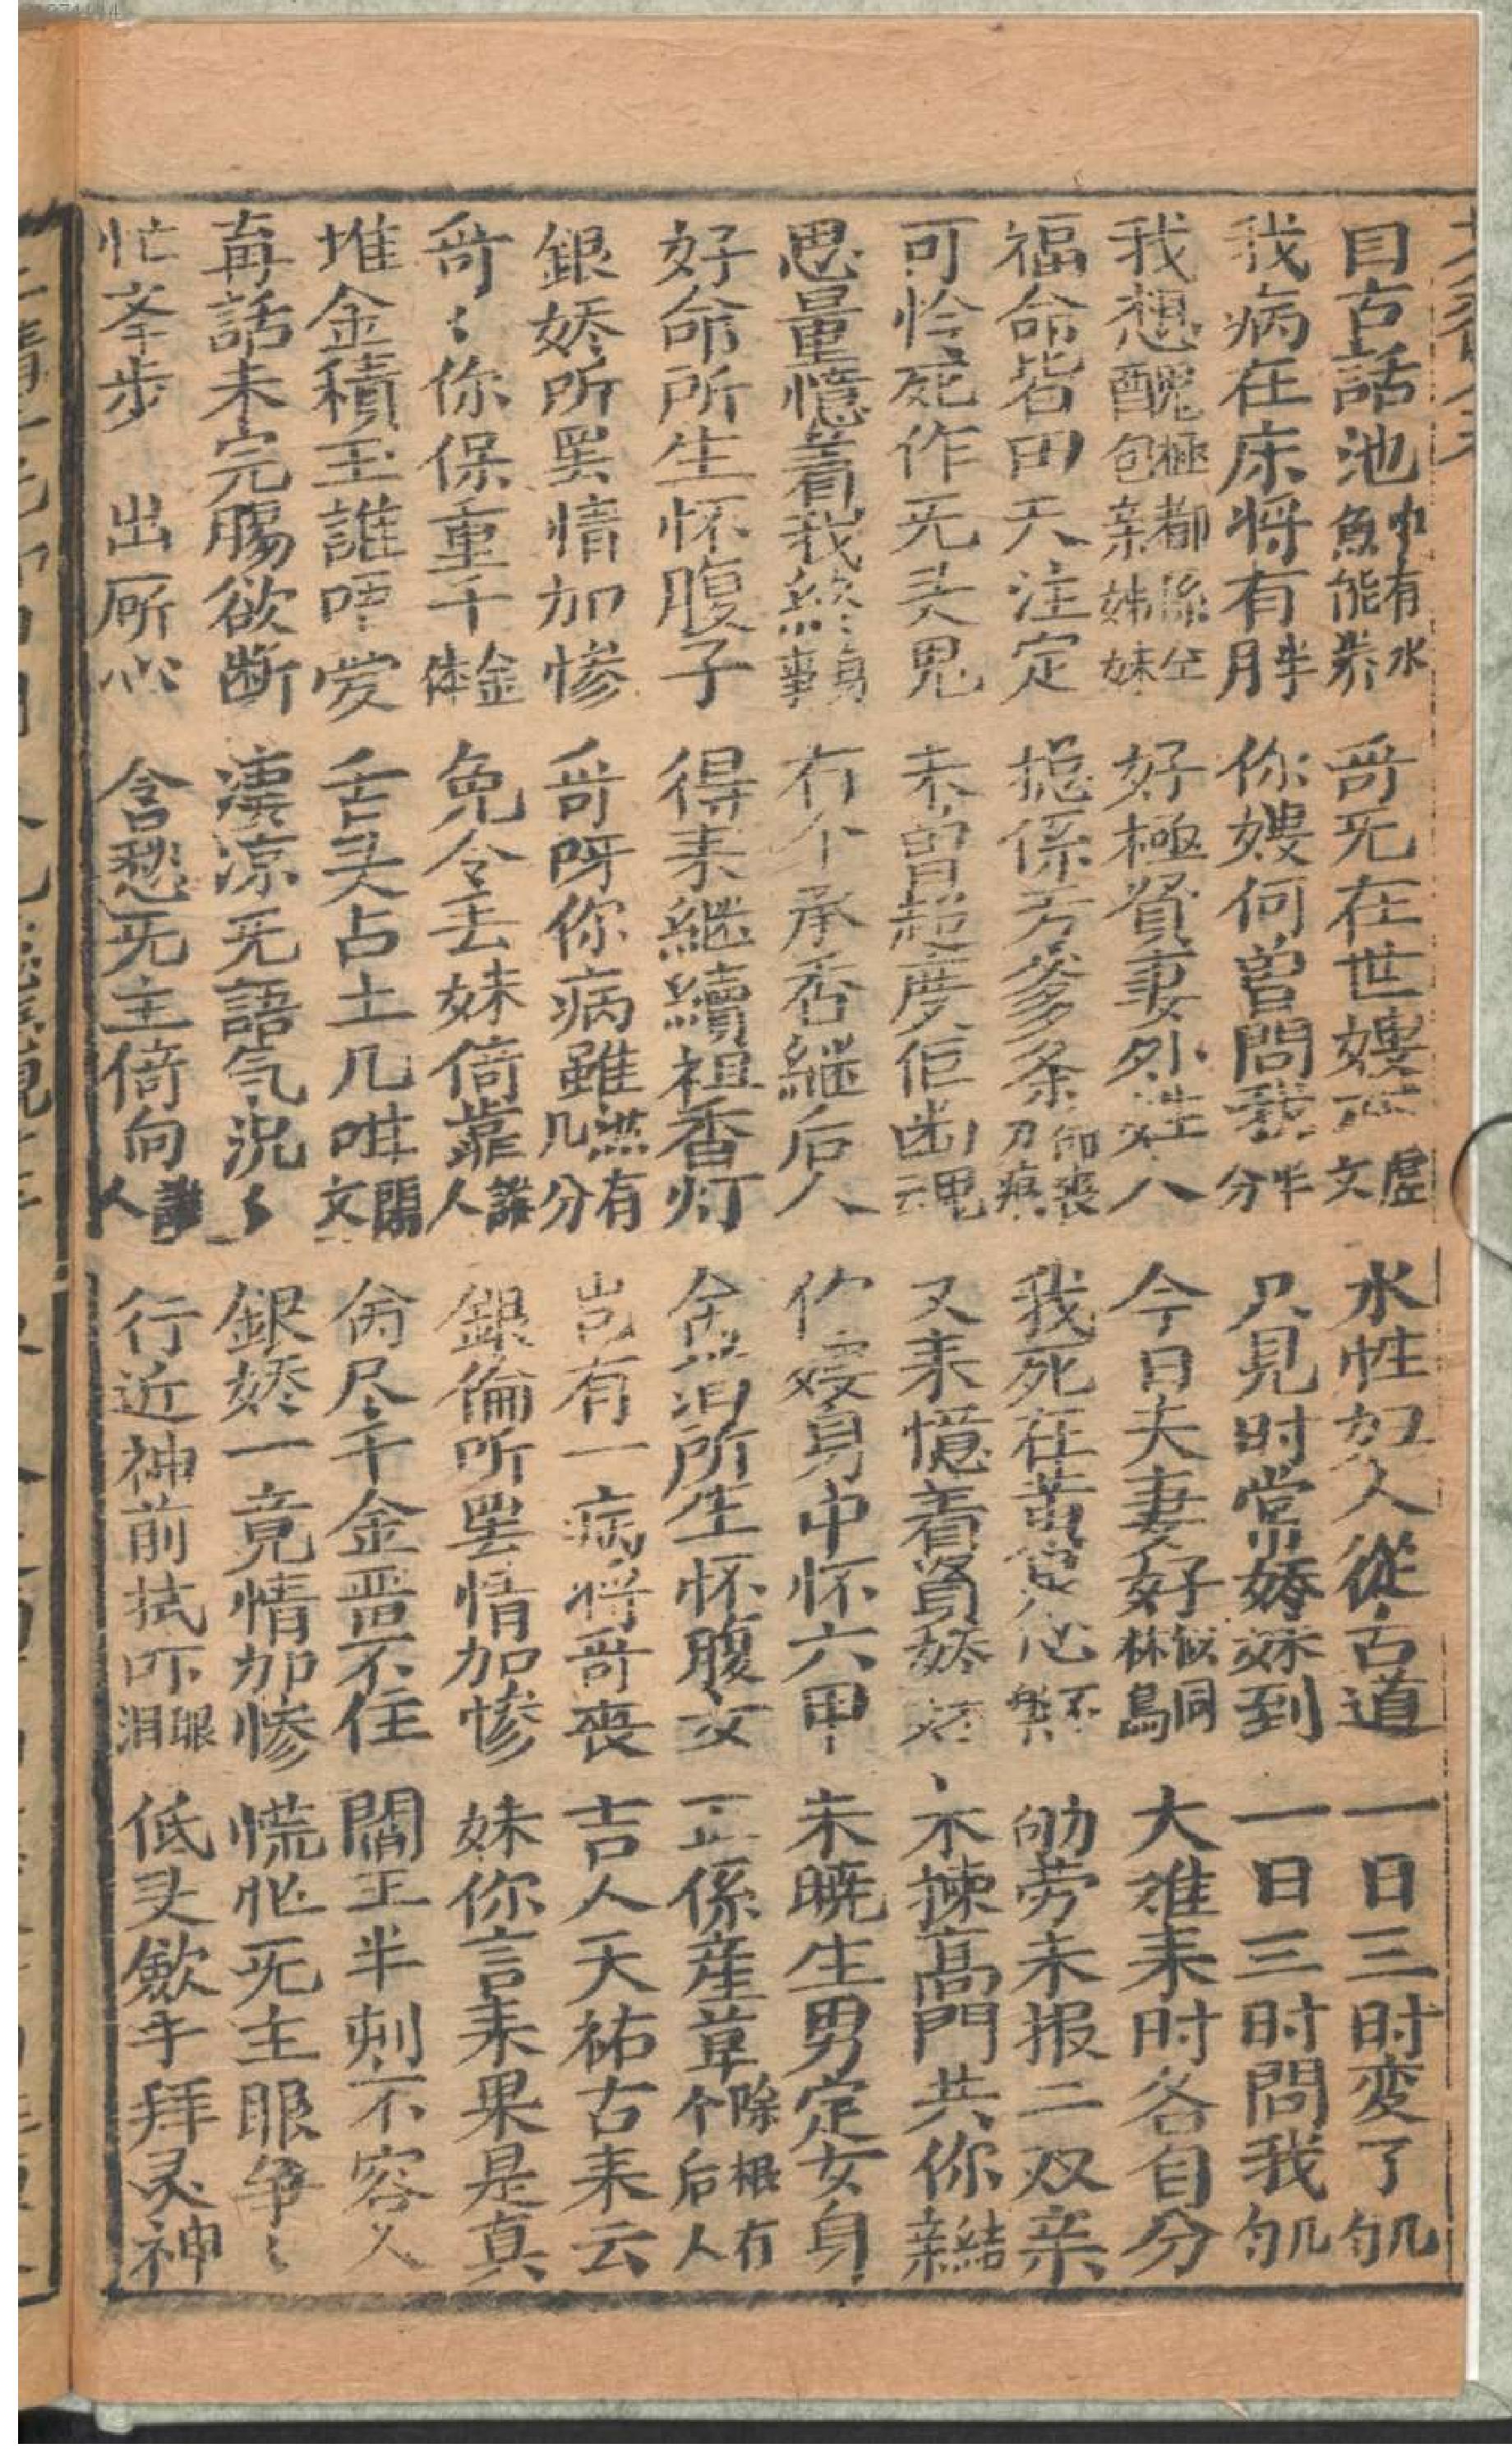 目古話池中有水魚能养 哥旡在世嫂虛文 水性妇人從古道 一日三时変了几勻
我病在床将有半月 你嫂何曽問我半分 只見时常娇妹到 一日三时問我几勻
我想醜極都係包亲姊妹 好極賢妻外姓人 今日夫妻好似同林鳥 大难来时各自分
福命皆田天注定 捴係芳爹多条刀痕 我死在黄泉心不 劬劳未报二双亲
可怜死作旡头鬼 未曽超度佢幽魂 又来憶着賢娇 不揀高門共你結亲
思量憶着我終身事 冇个承香継后人 你嫂身中怀六甲 未曉生男定女身
好命所生怀腹子 得来継續祖香灯 舍 所生怀腹女 正係産草除根冇个后人
銀娇所罢情加慘 哥呀你病雖然有几分 岂有一病将哥喪 吉人天祐古来云
哥〻你保重千金体 免令去妹倚靠誰人 銀倫所罢情加慘 妹你言来果是真
堆金積玉誰唔愛 舌头占土几咁閗文 尙尽千金畱不住 閻王半刻不容人
再話未完腸欲断 凄凉旡語气况〻 銀娇一竟情加慘 慌忙旡主眼争〻
忙夆步 出厮心 含愁旡主倚向誰人 行近神前拭吓眼泪 低头歛手拜灵神